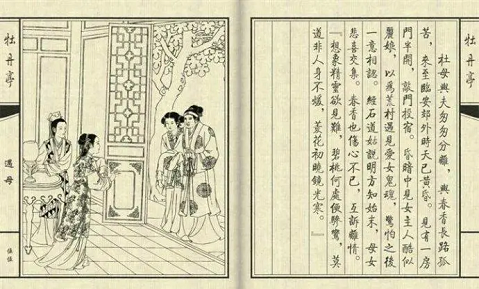 牡丹亭
杜母與夫匆匆分離，與春香長路孤
苦，來至臨安郊外時天已黃昏。見有一房
門半開，敲門投宿。昏暗中見女主人酷似
麗娘，以為荒村遇見愛女鬼魂，驚怕之後
一意相認。經石道姑說明方知始末，母女
悲喜交集。春香也傷心不已，互訴離情。
『想象精靈欲見難，碧桃何處便驂鸞，莫
道非人身不煖，菱花初曉鏡光寒。』
牡丹亭
遇母